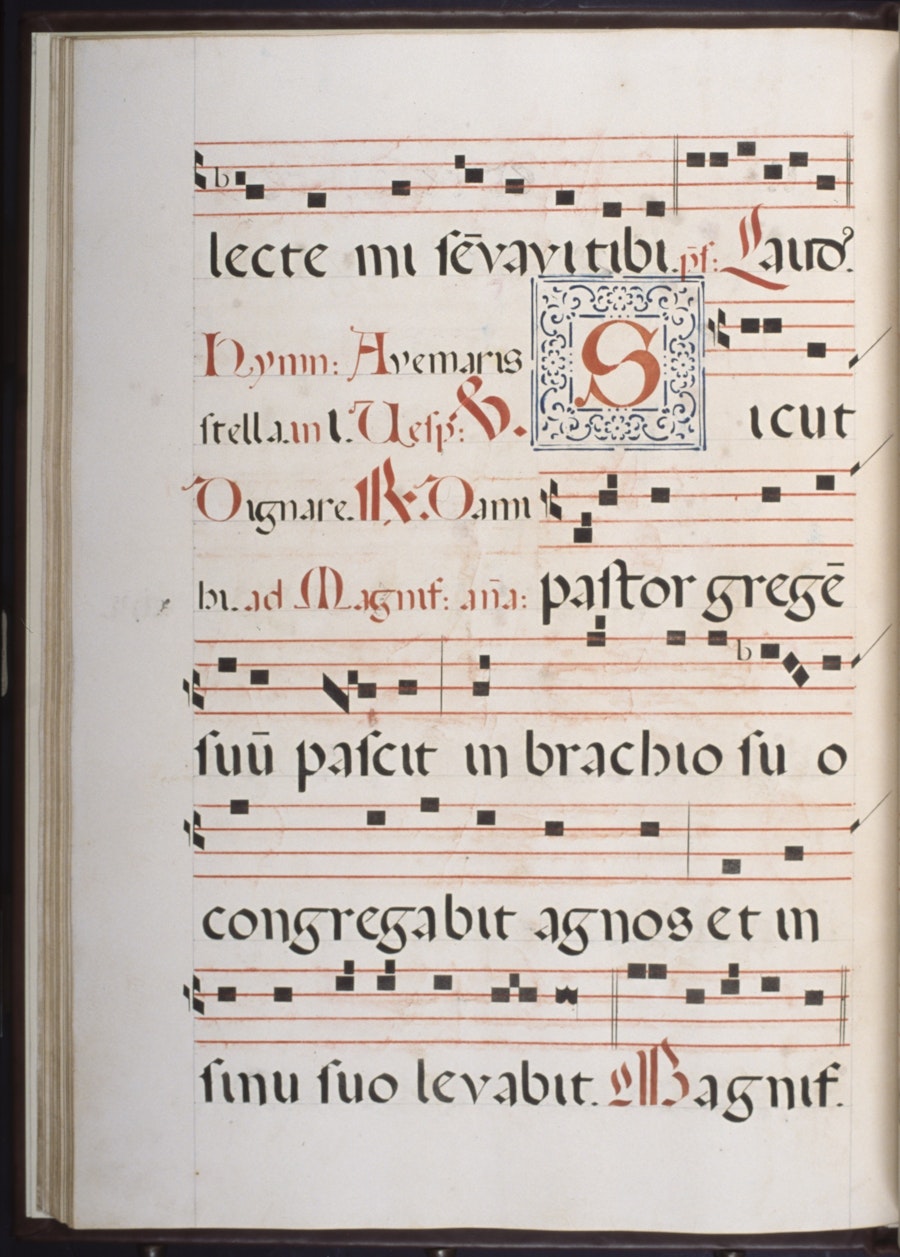 lecte mi sēvavi tibi. ps: Laud.
Hymn: Ave maris
stella. in 1. Uesp: ℣.
Sicut
Dignare. ℟. Da mi
hi. ad Magnif: aña:
pastor gregē
suū pascit in brachio su o
congregabit agnos et in
sinu suo levabit. Magnif.